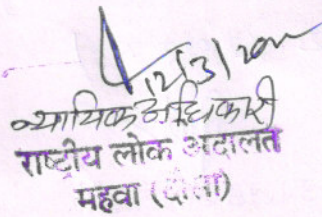 12/3/2022
न्यायिक अधिकारी
राष्ट्रीय लोक अदालत
महवा (दौसा)